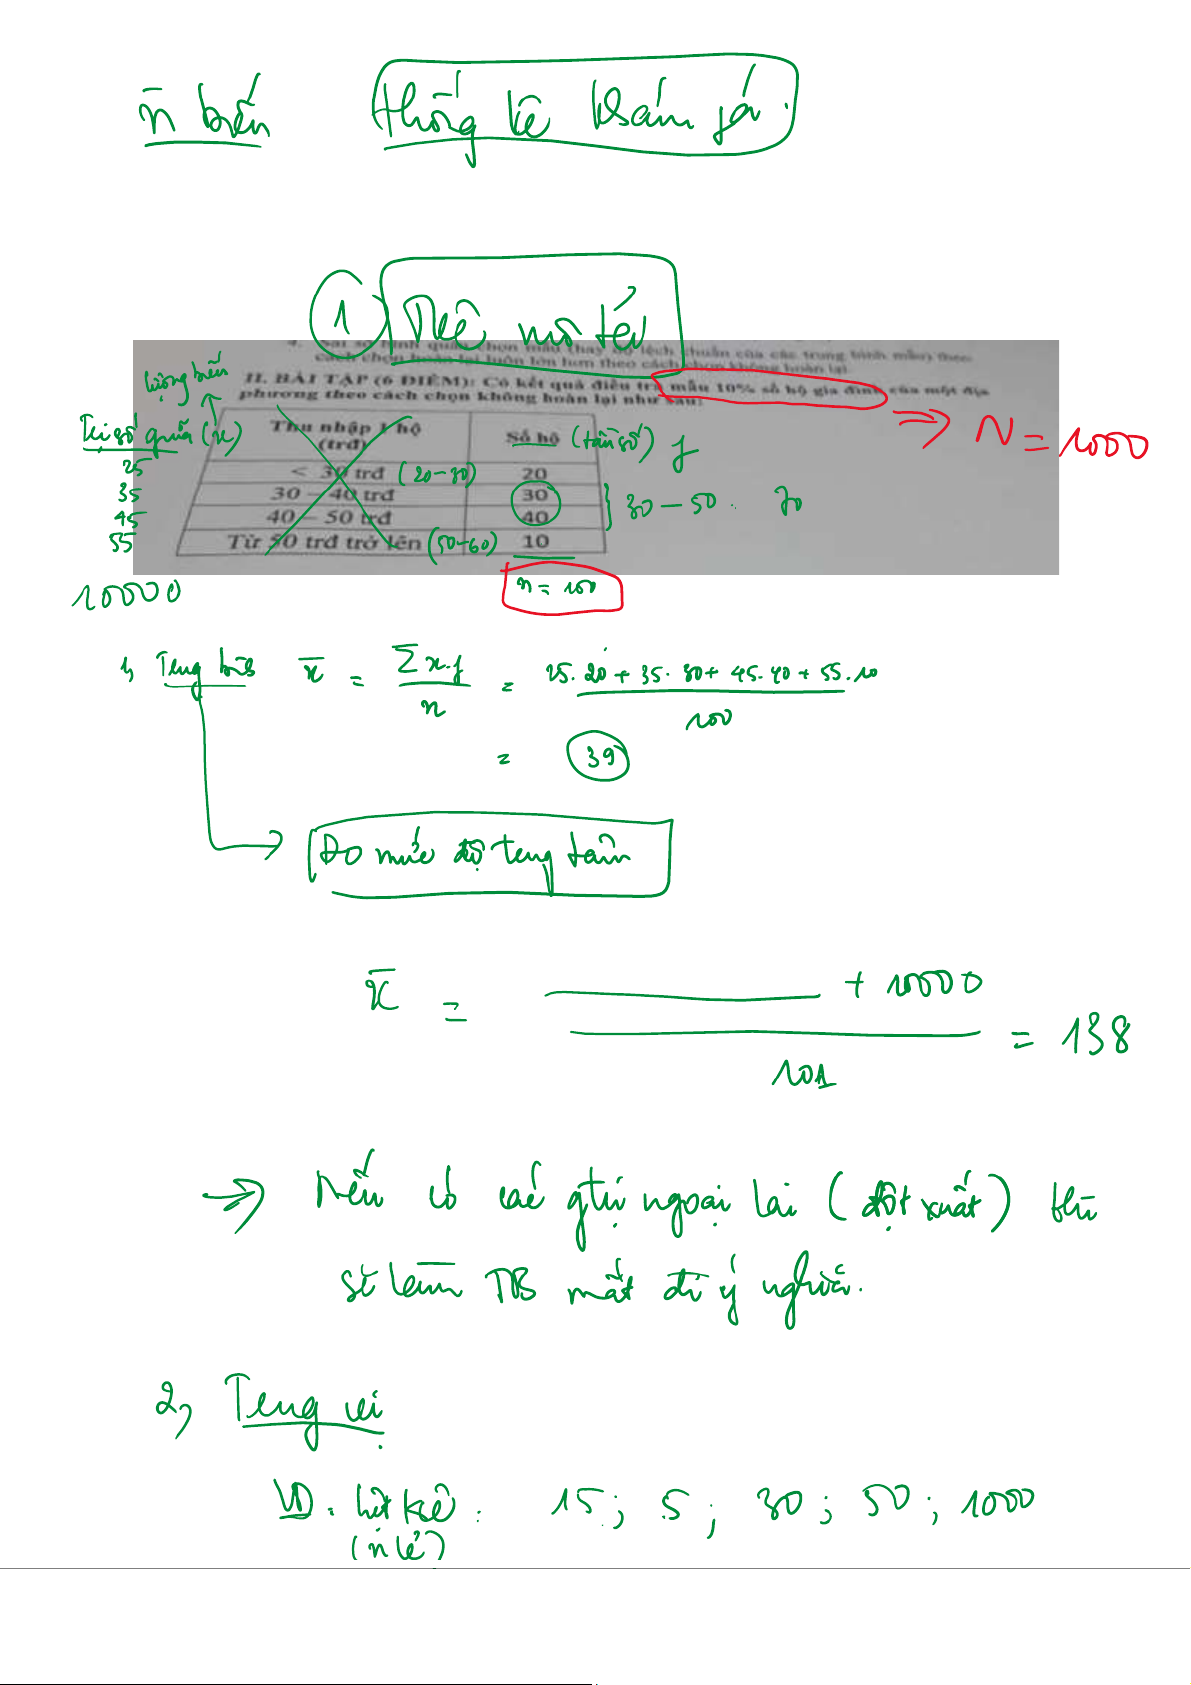 n biến thống kê khám phá.
1 Tkê mô tả
cách chọn hoàn lại luôn lớn hơn theo cách chọn không hoàn lại.
II. BÀI TẬP (6 ĐIỂM): Có kết quả điều tra mẫu 10% số hộ gia đình của một địa
phương theo cách chọn không hoàn lại như sau:
lượng biến
Trị số giữa (x) Thu nhập 1 hộ (trđ) Số hộ (tần số) f => N = 1000
25 < 30 trđ (20-30) 20
35 30 – 40 trđ 30
45 40 – 50 trđ 40 } 30 – 50. 70
55 Từ 50 trđ trở lên (50-60) 10
10000 n = 100
1, Trung bình x̄ = Σx.f / n = 25.20 + 35.30 + 45.40 + 55.10 / 100
= 39
Đo mức độ trung tâm
x̄ = + 10000 / 101 = 138
=> Nếu có các gtrị ngoại lai (đột xuất) thì
sẽ làm TB mất đi ý nghĩa.
2, Trung vị
VD: liệt kê: 15; 5; 30; 50; 1000
(n lẻ)